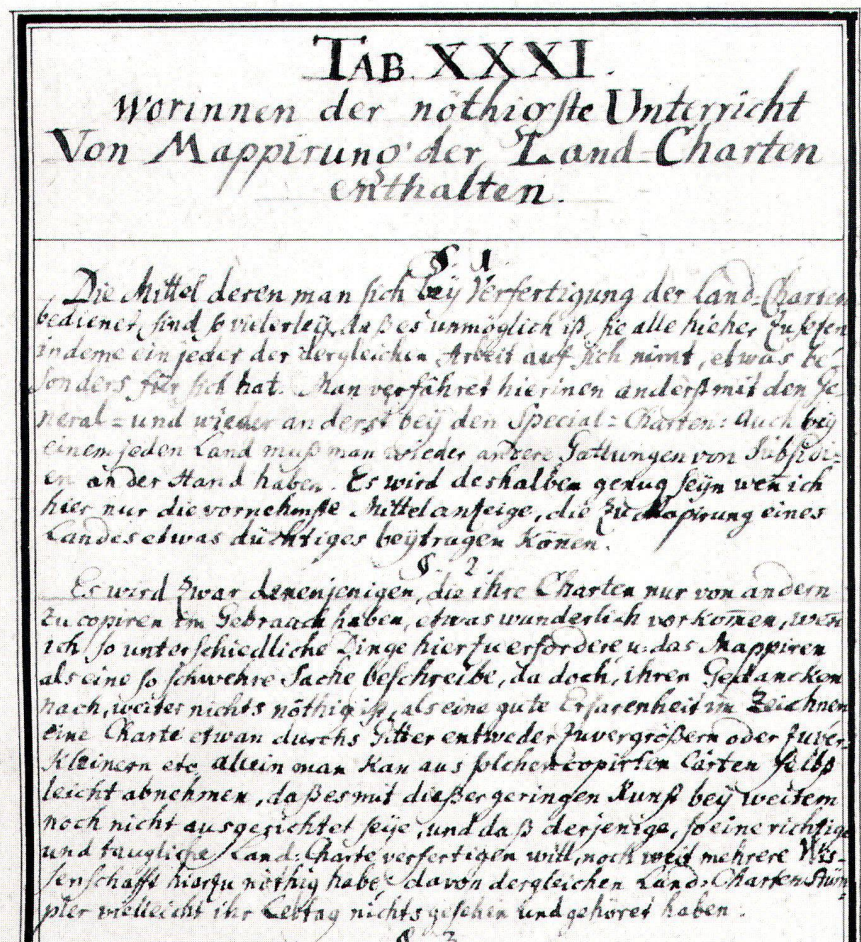 TAB. XXXI.
Worinnen der nöthigste Unterricht
Von Mappirung der Land-Charten
enthalten.
§. 1.
Die Mittel deren man sich bey Verfertigung der Land-Charten
bedienet, sind so vielerley, daß es unmöglich ist, sie alle hieher zu setzen
indeme ein jeder der dergleichen Arbeit auf sich nimt, etwas be-
sonders für sich hat. Man verfähret hierinen anderst mit den Ge-
neral- und wieder anderst bey den Special-Charten: Auch bey
einem jeden Land muß man wieder andere Gattungen von Subsidi-
en an der Hand haben. Es wird deshalben genug seÿn wen̄ ich
hier nur die vornehmste Mittel anzeige, die zu Mapirung eines
Landes etwas düchtiges beÿtragen kön̄en.
§. 2.
Es wird zwar denenjenigen, die ihre Charten nur von andern
zu copiren im Gebrauch haben, etwas wunderlich vorkom̄en, wen̄
ich so unterschiedliche Dinge hierzu erfordere u. das Mappiren
als eine so schwehre Sache beschreibe, da doch, ihren Gedancken
nach, weiter nichts nöthig ist, als eine gute Erfarenheit im Zeichnen
eine Charte etwan durchs Gitter entweder zu vergrößern oder zu ver-
kleinern etc. allein man kan aus solchen copirten Carten selbst
leicht abnehmen, daß es mit dießer geringen Kunst bey weitem
noch nicht ausgerichtet seye, und daß derjenige, so eine richtige
und taugliche Land-Charte verfertigen will, noch weit mehrere Wis-
senschafft hierzu nöthig habe, davon dergleichen Land-Charten-Stüm-
pler vielleicht ihr Lebtag nichts gesehen und gehöret haben.
§. 3.